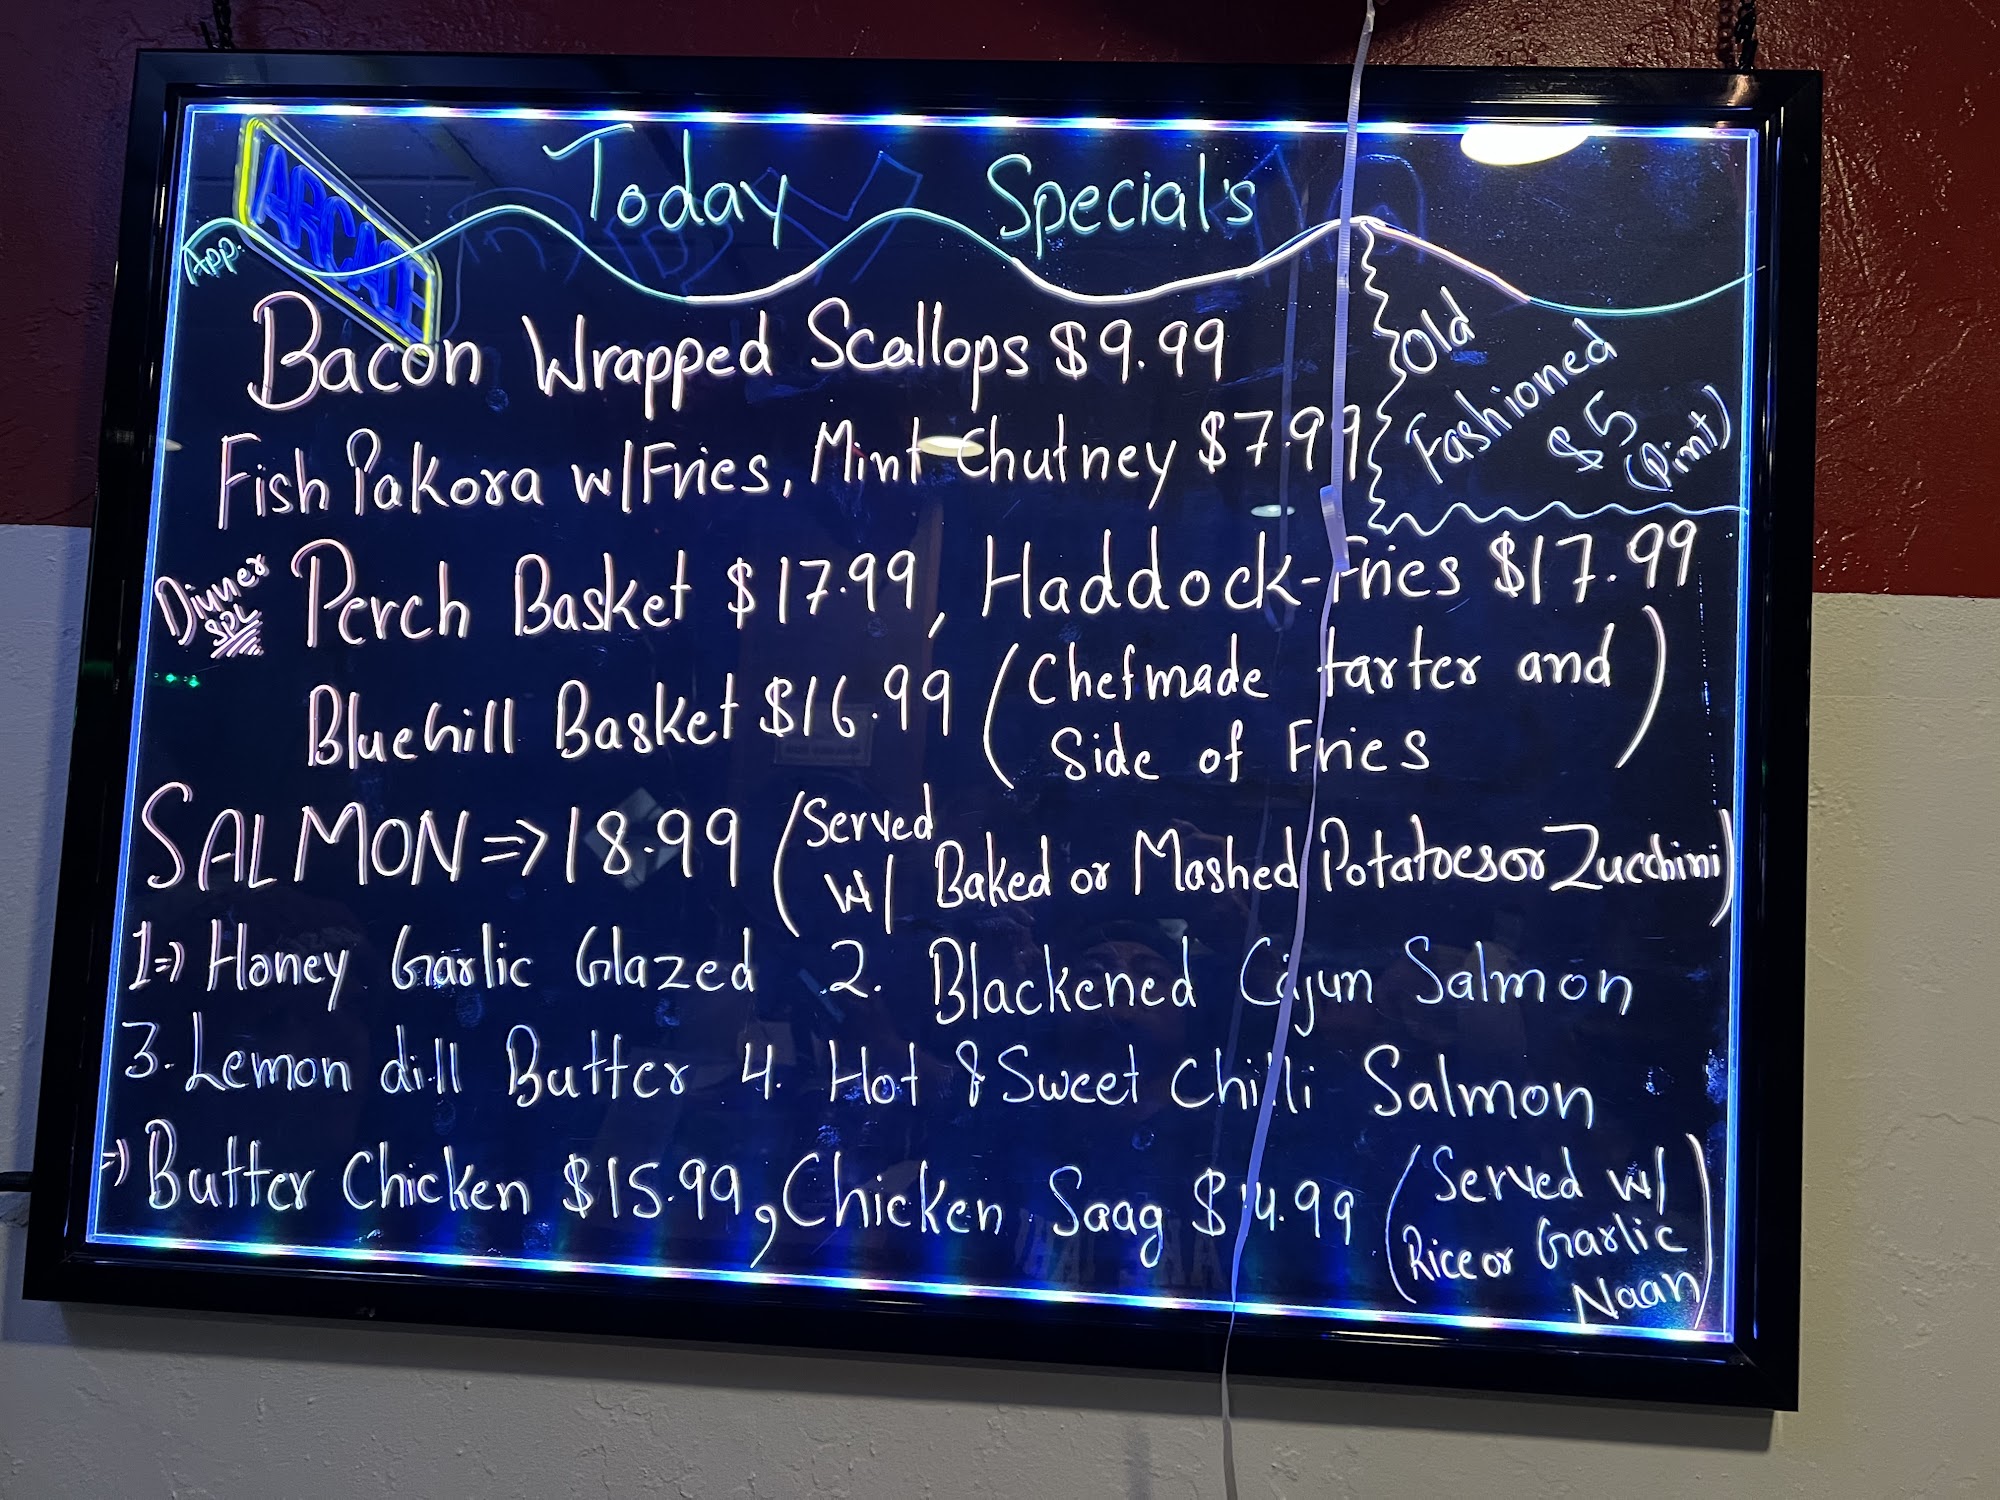 ARCADE
Today Special's
App.
Bacon Wrapped Scallops $9.99
Fish Pakora w/Fries, Mint Chutney $7.99
Old
Fashioned
$5
(Pint)
Dinner
SPL
Perch Basket $17.99, Haddock-Fries $17.99
Bluehill Basket $16.99 (Chefmade tarter and
Side of Fries)
SALMON => 18.99 (Served
w/ Baked or Mashed Potatoes or Zucchini)
1=) Honey Garlic Glazed 2. Blackened Cajun Salmon
3. Lemon dill Butter 4. Hot & Sweet Chilli Salmon
=) Butter Chicken $15.99, Chicken Saag $14.99 (Served w/
Rice or Garlic
Naan)